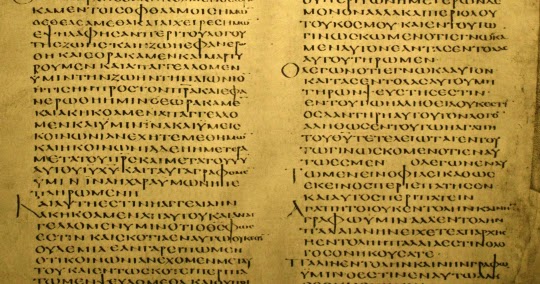 ΚΑΜΕΝΤΟΙCΟΦΘΑΛΜΟΙCΗΜΩ
ΟΕΘΕΑCΑΜΕΘΑΚΑΙΑΙΧΕΙΡΕCΗΜΩ
ΕΨΗΛΑΦΗCΑΝΠΕΡΙΤΟΥΛΟΓΟΥ
ΤΗCΖΩΗCΚΑΙΗΖΩΗΕΦΑΝΕΡΩ
ΘΗΚΑΙΕΟΡΑΚΑΜΕΝΚΑΙΜΑΡΤΥ
ΡΟΥΜΕΝΚΑΙΑΠΑΓΓΕΛΛΟΜΕ
ΥΜΙΝΤΗΝΖΩΗΝΤΗΝΑΙΩΝΙΟ
ΗΤΙCΗΝΠΡΟCΤΟΝΠΡΑΚΑΙΕΦΑ
ΝΕΡΩΘΗΗΜΙΝΟΕΩΡΑΚΑΜΕ
ΚΑΙΑΚΗΚΟΑΜΕΝΑΠΑΓΓΕΛΛΟ
ΜΕΝΚΑΙΥΜΙΝΙΝΑΚΑΙΥΜΕΙC
ΚΟΙΝΩΝΙΑΝΕΧΗΤΕΜΕΘΗΜΩ
ΚΑΙΗΚΟΙΝΩΝΙΑΔΕΗΗΜΕΤΕΡΑ
ΜΕΤΑΤΟΥΠΡCΚΑΙΜΕΤΑΤΟΥΥΥ
ΑΥΤΟΥΙΥΧΥΚΑΙΤΑΥΤΑΓΡΑΦΟΜΕ
ΥΜΙΝΙΝΑΗΧΑΡΑΥΜΩΝΗΠΕ
ΠΛΗΡΩΜΕΝΗ
ΚΑΙΑΥΤΗΕCΤΙΝΗΑΓΓΕΛΙΑΗΝ
ΑΚΗΚΟΑΜΕΝΑΠΑΥΤΟΥΚΑΙΑΝΑ
ΓΓΕΛΛΟΜΕΝΥΜΙΝΟΤΙΟΘCΦΩC
ΕCΤΙΝΚΑΙCΚΟΤΙΑΕΝΑΥΤΩΟΥΚΕCΤΙ
ΟΥΔΕΜΙΑΕΑΝΓΑΡΕΙΠΩΜΕΝ
ΟΤΙΚΟΙΝΩΝΙΑΝΕΧΟΜΕΝΜΕΤΑΥ
ΤΟΥΚΑΙΕΝΤΩCΚΟΤΕΙΠΕΡΙΠΑ
ΤΩΜΕΝΨΕΥΔΟΜΕΘΑΚΑΙΟΥ
ΜΟΝΟΝΑΛΛΑΚΑΙΠΕΡΙΟΛΟΥ
ΤΟΥΚΟCΜΟΥΚΑΙΕΝΤΟΥΤΩ
ΓΙΝΩCΚΟΜΕΝΟΤΙΕΓΝΩΚΑ
ΜΕΝΑΥΤΟΝΕΑΝΤΑCΕΝΤΟΛΑC
ΑΥΤΟΥΤΗΡΩΜΕΝ
ΟΛΕΓΩΝΟΤΙΕΓΝΩΚΑΑΥΤΟΝ
ΚΑΙΤΑCΕΝΤΟΛΑCΑΥΤΟΥΜΗ
ΤΗΡΩΝΨΕΥCΤΗCΕCΤΙΝ
ΑΥΤΟΥΤΟΝΛΟΓΟΝΑΛΗ
ΘΩCΕΝΤΟΥΤΩΗΑΓΑΠΗ
ΤΟΥΘΥΤΕΤΕΛΕΙΩΤΑΙΕΝΤΟΥ
ΤΩΓΙΝΩCΚΟΜΕΝΟΤΙΕΝΑΥ
ΤΩΕCΜΕΝ ΟΛΕΓΩΝΕΝΑΥ
ΤΩΜΕΝΕΙΝΟΦΙΛΕΙΚΑΘΩC
ΕΚΕΙΝΟCΠΕΡΙΕΠΑΤΗCΕΝ
ΚΑΙΑΥΤΟCΠΕΡΙΠΑΤΕΙΝ
ΑΓΑΠΗΤΟΙΟΥΚΕΝΤΟΛΗΝΚΑΙΝΗΝ
ΓΡΑΦΩΥΜΙΝΑΛΛΕΝΤΟΛΗΝ
ΠΑΛΑΙΑΝΗΝΕΙΧΕΤΕΑΠΑΡΧΗC
ΗΕΝΤΟΛΗΗΠΑΛΑΙΑΕCΤΙΝΟΛΟ
ΓΟCΟΝΗΚΟΥCΑΤΕ
ΠΑΛΙΝΕΝΤΟΛΗΝΚΑΙΝΗΝΓΡΑΦΩ